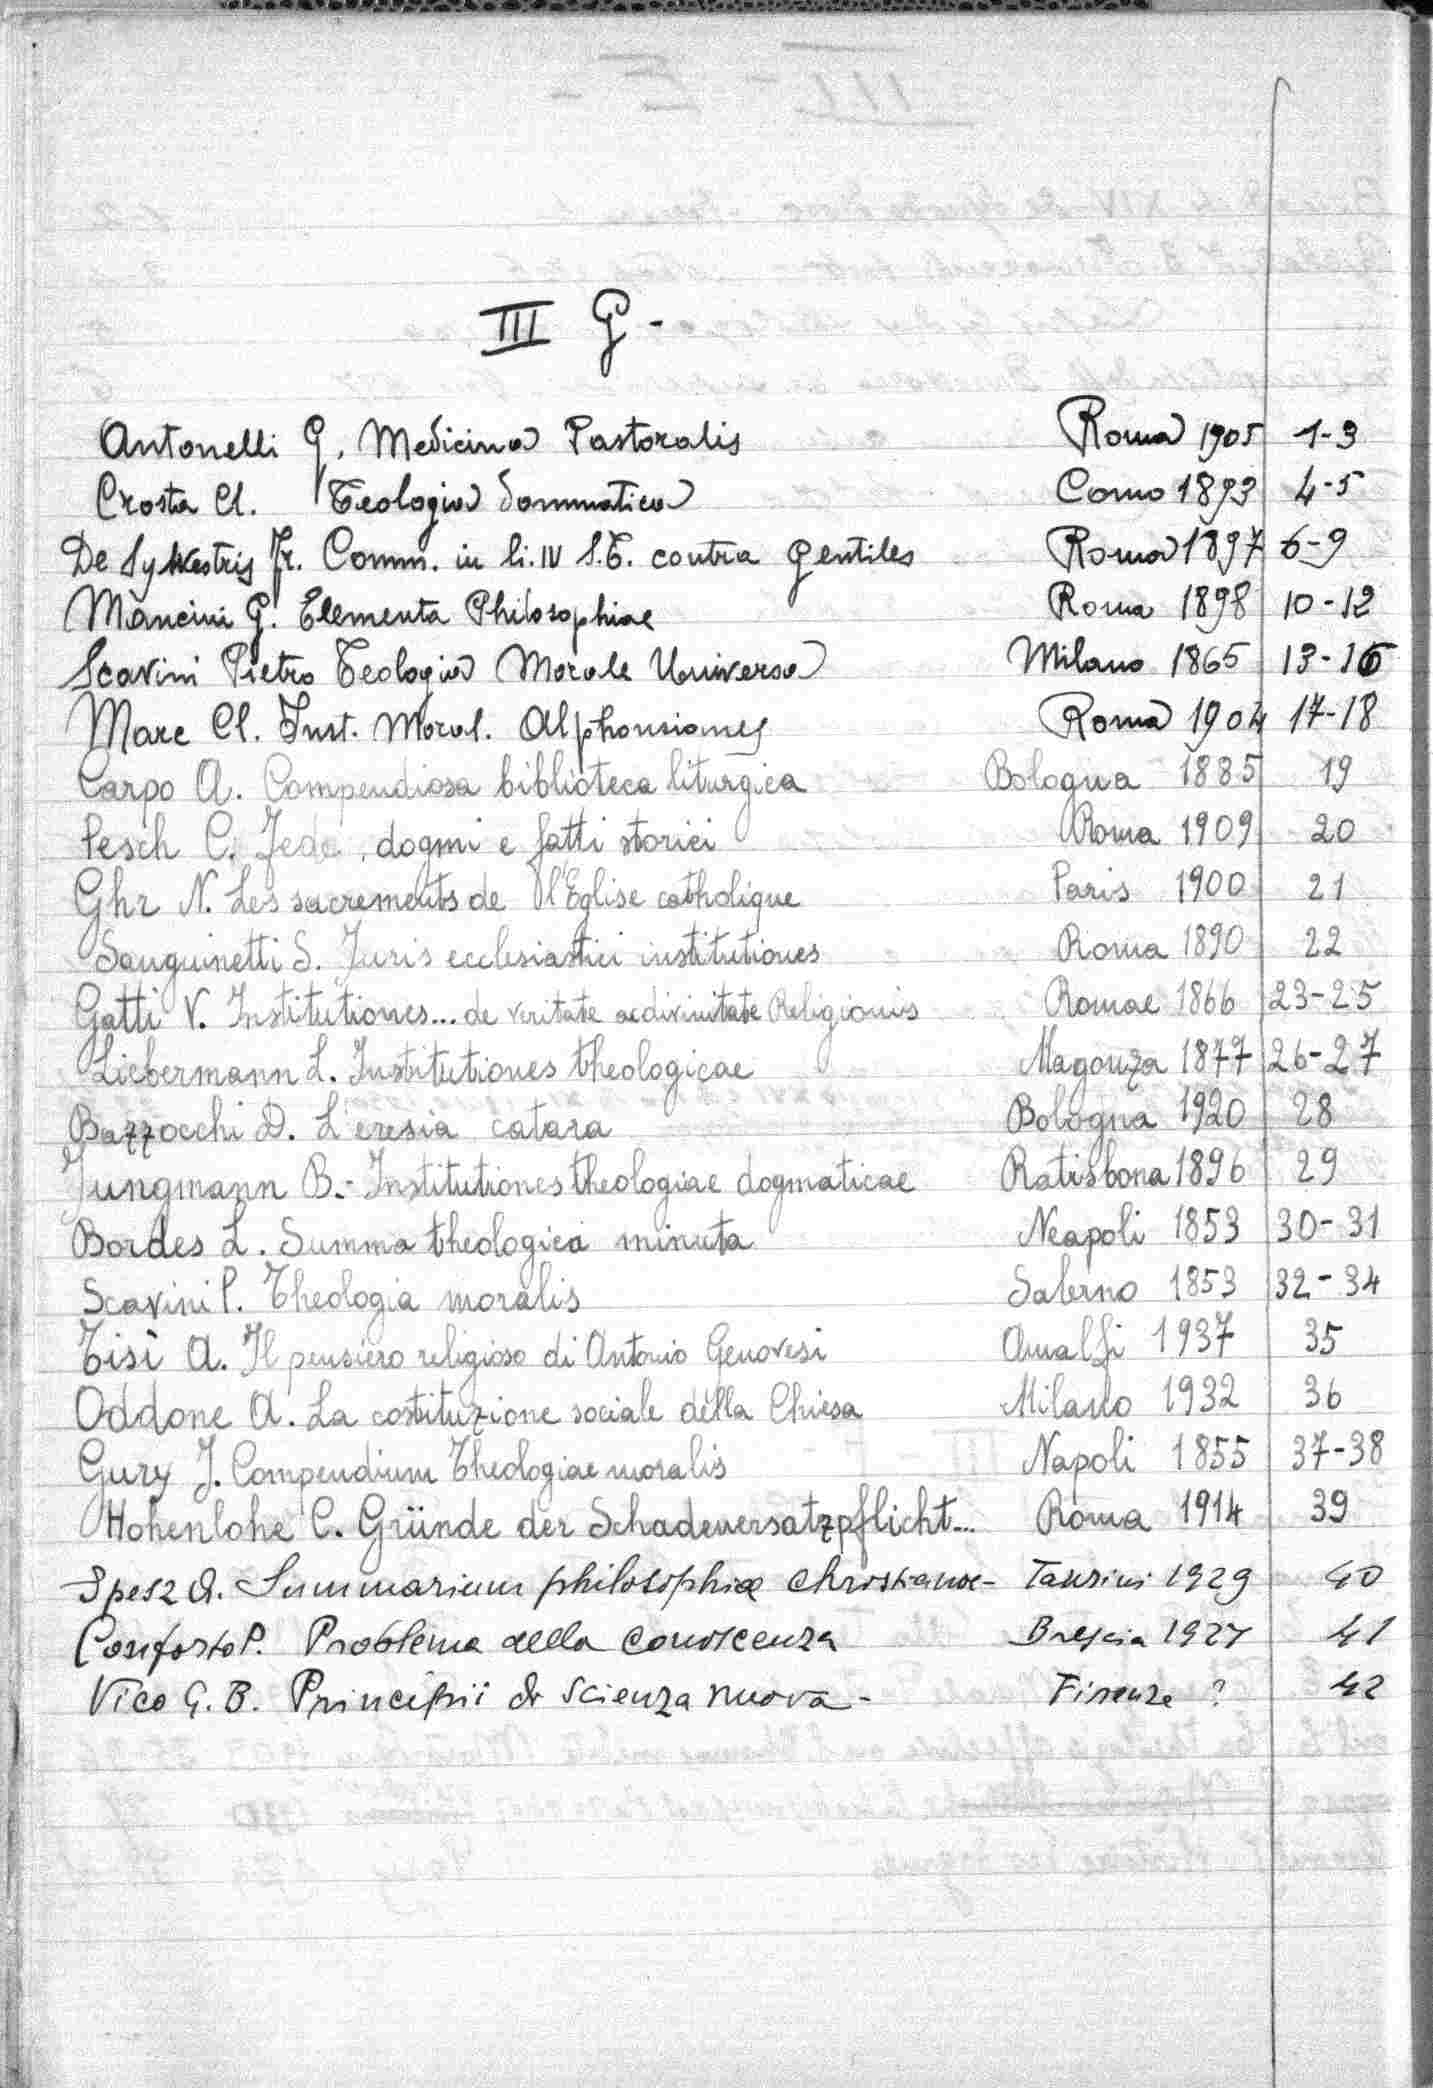 III G -
Antonelli G. Medicina Pastoralis Roma 1905 1-3
Crosta Cl. Teologia dommatica Como 1893 4-5
De Sylvestris Fr. Comm. in li. IV S.T. contra gentiles Roma 1897 6-9
Mancini G. Elementa Philosophiae Roma 1898 10-12
Scavini Pietro Teologia Morale Universa Milano 1865 13-16
Marc Cl. Inst. Moral. Alphonsianes Roma 1904 17-18
Carpo A. Compendiosa biblioteca liturgica Bologna 1885 19
Pesch C. Fede, dogmi e fatti storici Roma 1909 20
Ghr N. Les sacrements de l'Eglise catholique Paris 1900 21
Sanguinetti S. Juris ecclesiastici institutiones Roma 1890 22
Gatti V. Institutiones... de veritate ac divinitate Religionis Romae 1866 23-25
Liebermann L. Institutiones theologicae Magonza 1877 26-27
Bazzocchi D. L'eresia catara Bologna 1920 28
Jungmann B.- Institutiones theologiae dogmaticae Ratisbona 1896 29
Bordes L. Summa theologica minuta Neapoli 1853 30-31
Scavini P. Theologia moralis Salerno 1853 32-34
Tisi A. Il pensiero religioso di Antonio Genovesi Amalfi 1937 35
Oddone A. La costituzione sociale della Chiesa Milano 1932 36
Gury J. Compendium Theologiae moralis Napoli 1855 37-38
Hohenlohe C. Gründe der Schadenersatzpflicht... Roma 1914 39
Spesz A. Summarium philosophiae christianae- Taurini 1929 40
Conforto P. Problema della conoscenza Brescia 1927 41
Vico G. B. Principii di Scienza nuova - Firenze ? 42